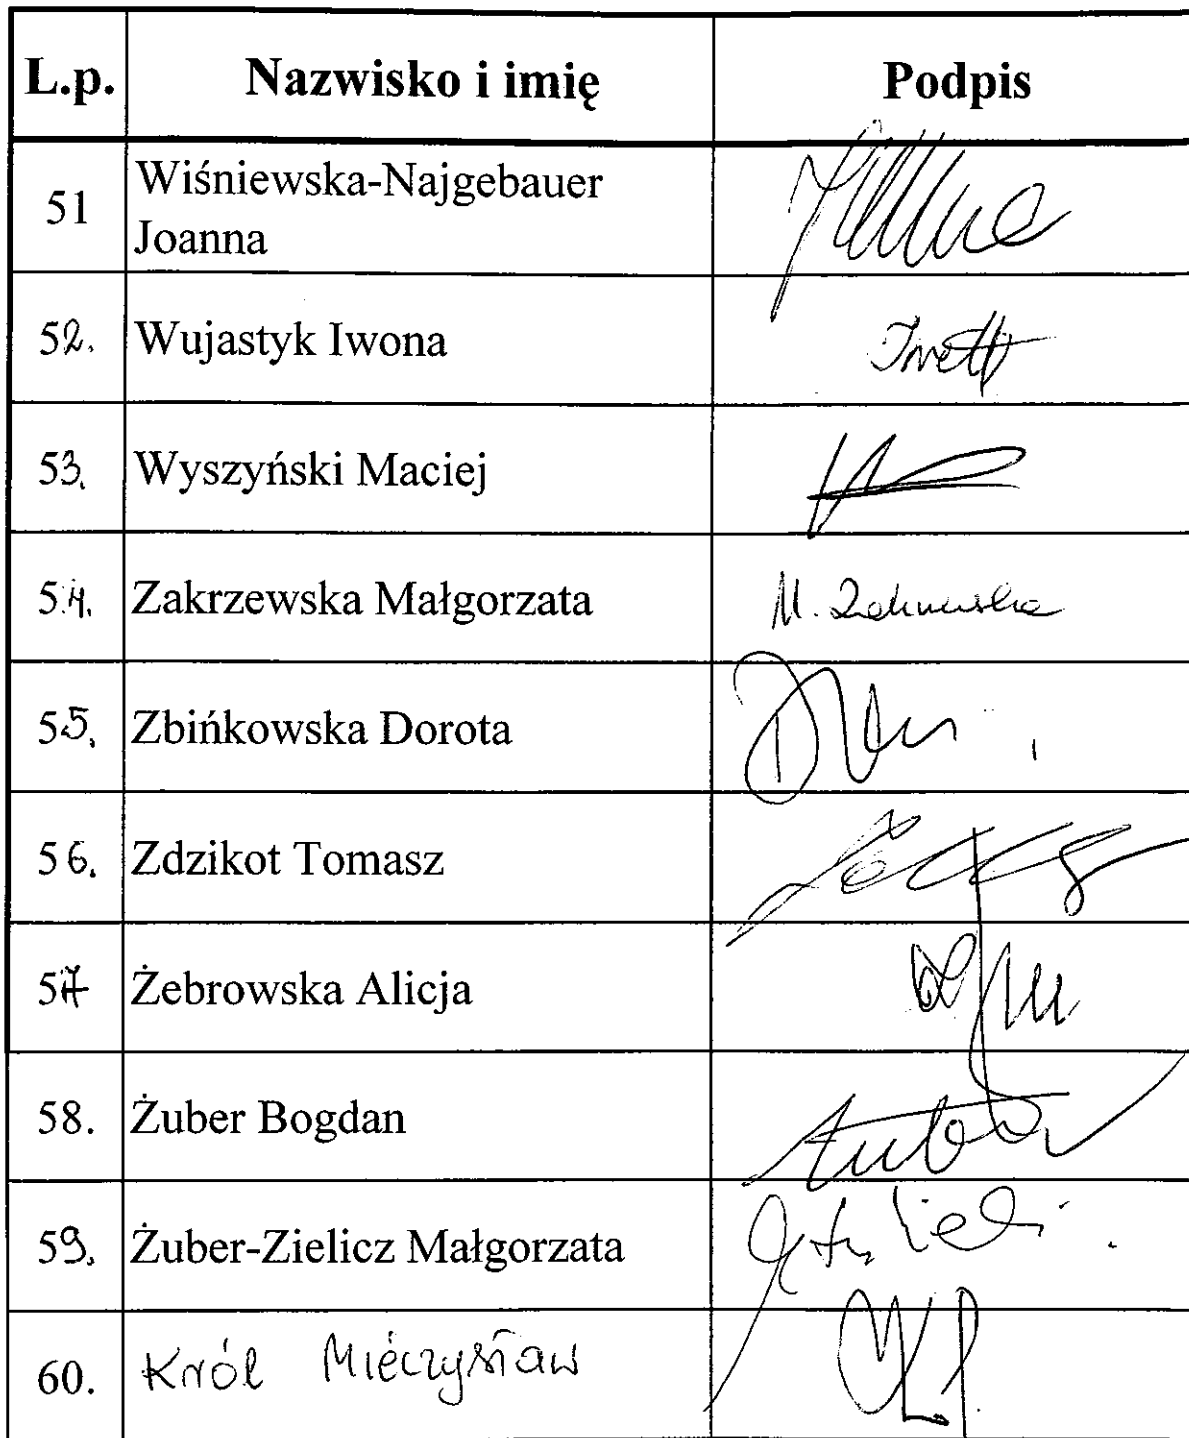 L.p. Nazwisko i imię Podpis
51 Wiśniewska-Najgebauer
Joanna
52. Wujastyk Iwona
53. Wyszyński Maciej
54. Zakrzewska Małgorzata M. Zakrzewska
55. Zbińkowska Dorota
56. Zdzikot Tomasz
57 Żebrowska Alicja
58. Żuber Bogdan
59. Żuber-Zielicz Małgorzata
60. Król Mieczysław